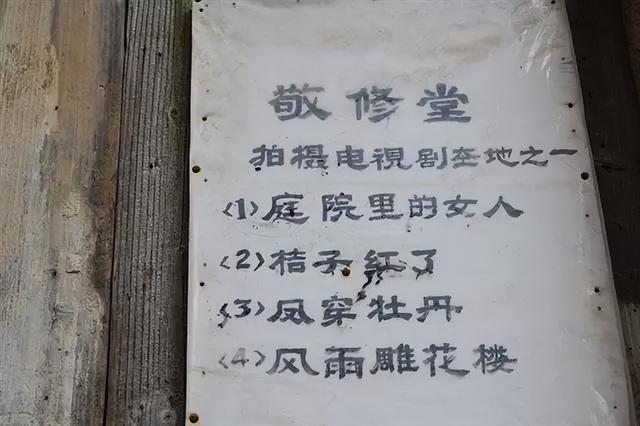 敬修堂
拍摄电視剧基地之一
(1)庭院里的女人
(2)桔子红了
(3)凤穿牡丹
(4)风雨雕花楼